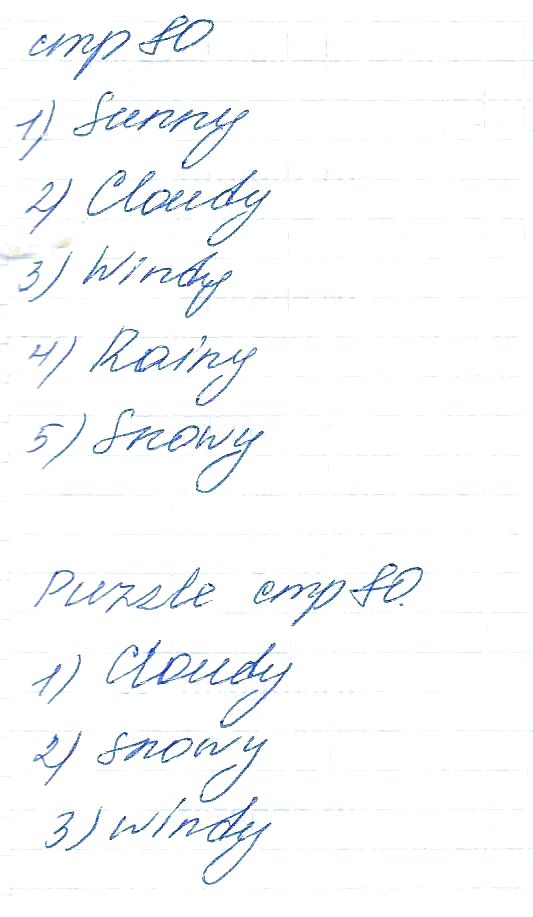 стр 80
1) Sunny
2) Cloudy
3) Windy
4) Rainy
5) Snowy
Puzzle стр 80.
1) Cloudy
2) snowy
3) windy